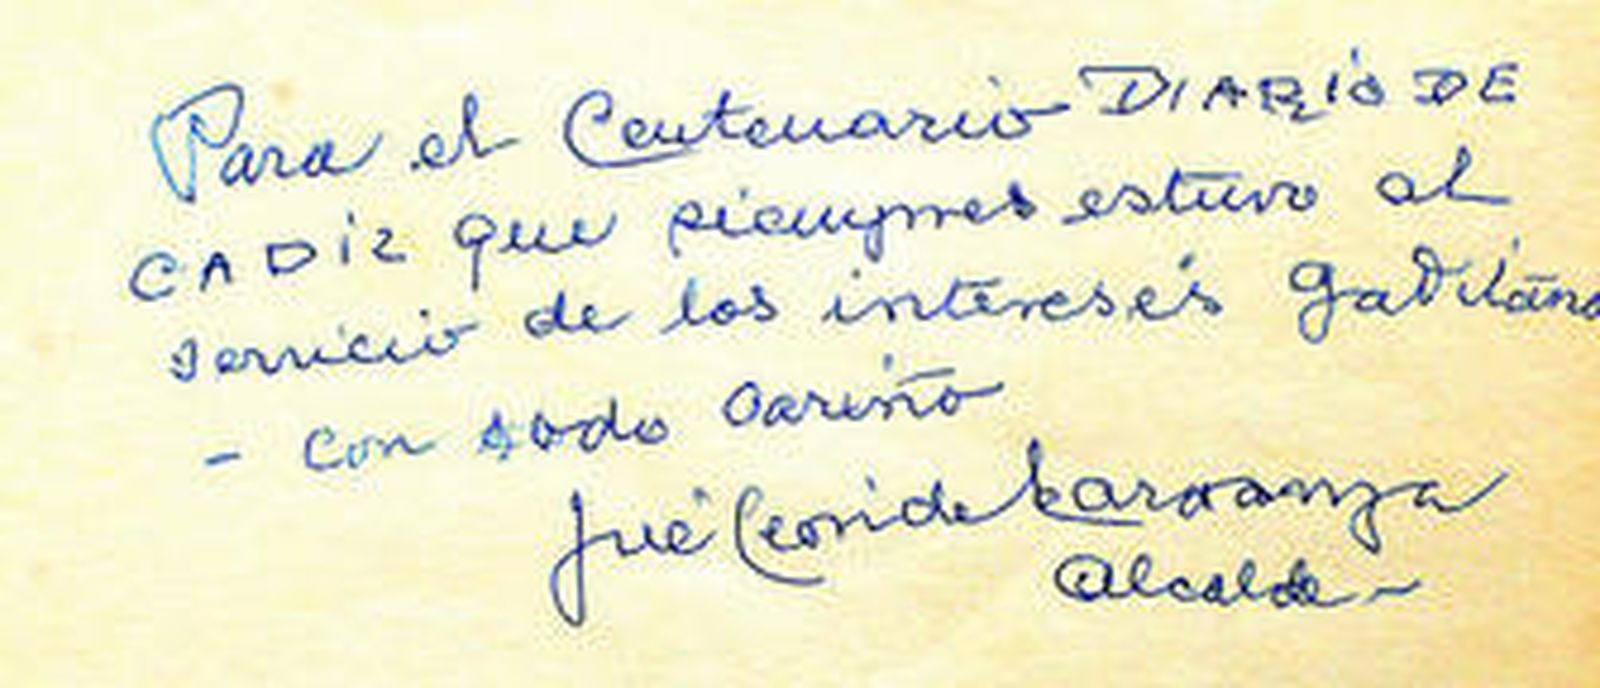 Para el Centenario DIARIO DE
CADIZ que siempres estuvo al
servicio de los intereses gaditano
- con todo cariño
José León de Carranza
Alcalde -